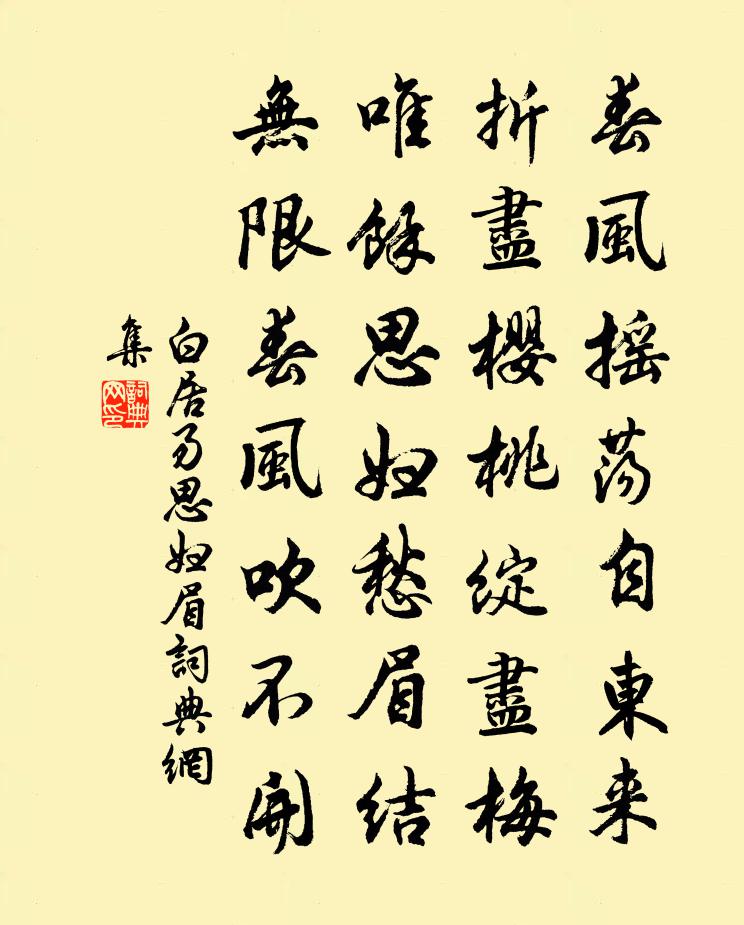 春風摇蕩自東来
折盡櫻桃綻盡梅
唯餘思婦愁眉結
無限春風吹不開
白居易思婦眉詞典網
集
詞典
网印